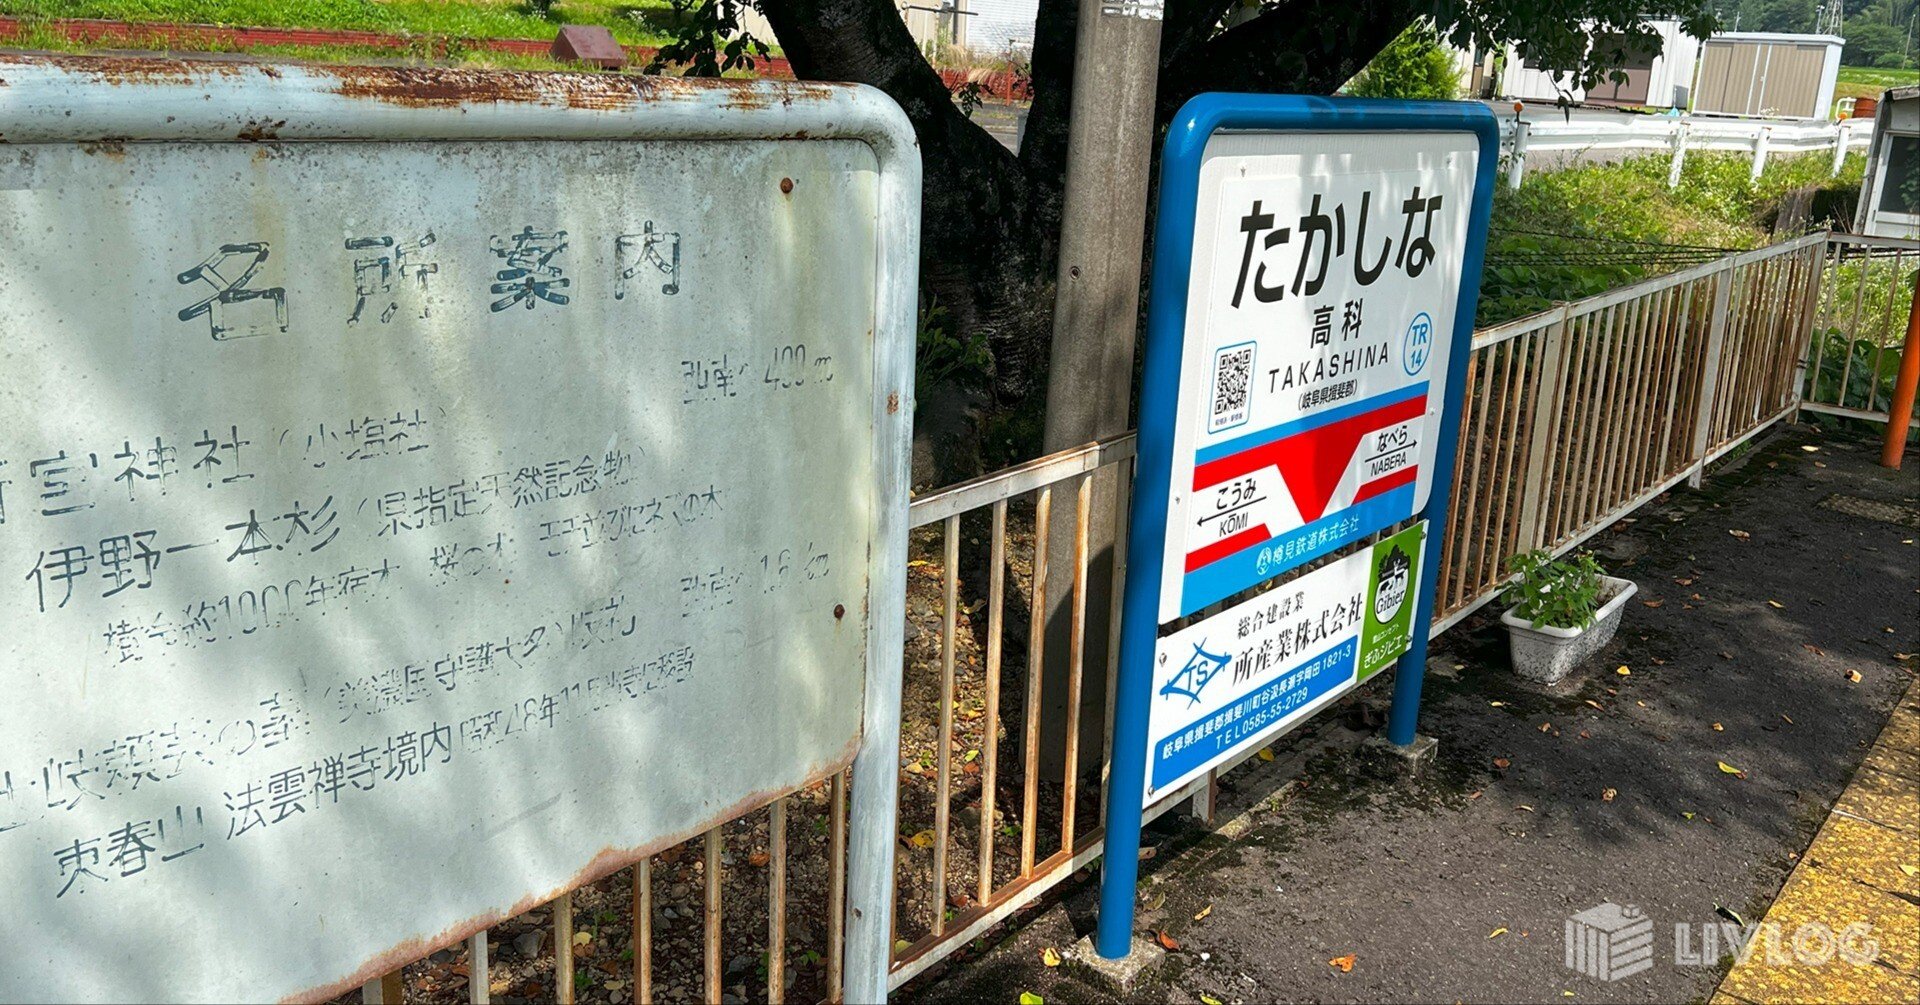 名所案内
北南へ400m
宮神社(小塩社)
伊野一本杉(県指定天然記念物)
樹令約1000年宿木 桜の木
1.6km
土岐頼芸の墓(美濃国守護大
東春山 法雲禅寺境内 昭和48年11月
たかしな
高科
TAKASHINA
(岐阜県揖斐郡)
TR
14
なべら
NABERA
こうみ
KŌMI
樽見鉄道株式会社
総合建設業
TS
所産業株式会社
岐阜県揖斐郡揖斐川町谷汲長瀬字岡田1821-3
TEL0585-55-2729
Gibier
ぎふジビエ
LIVLOG